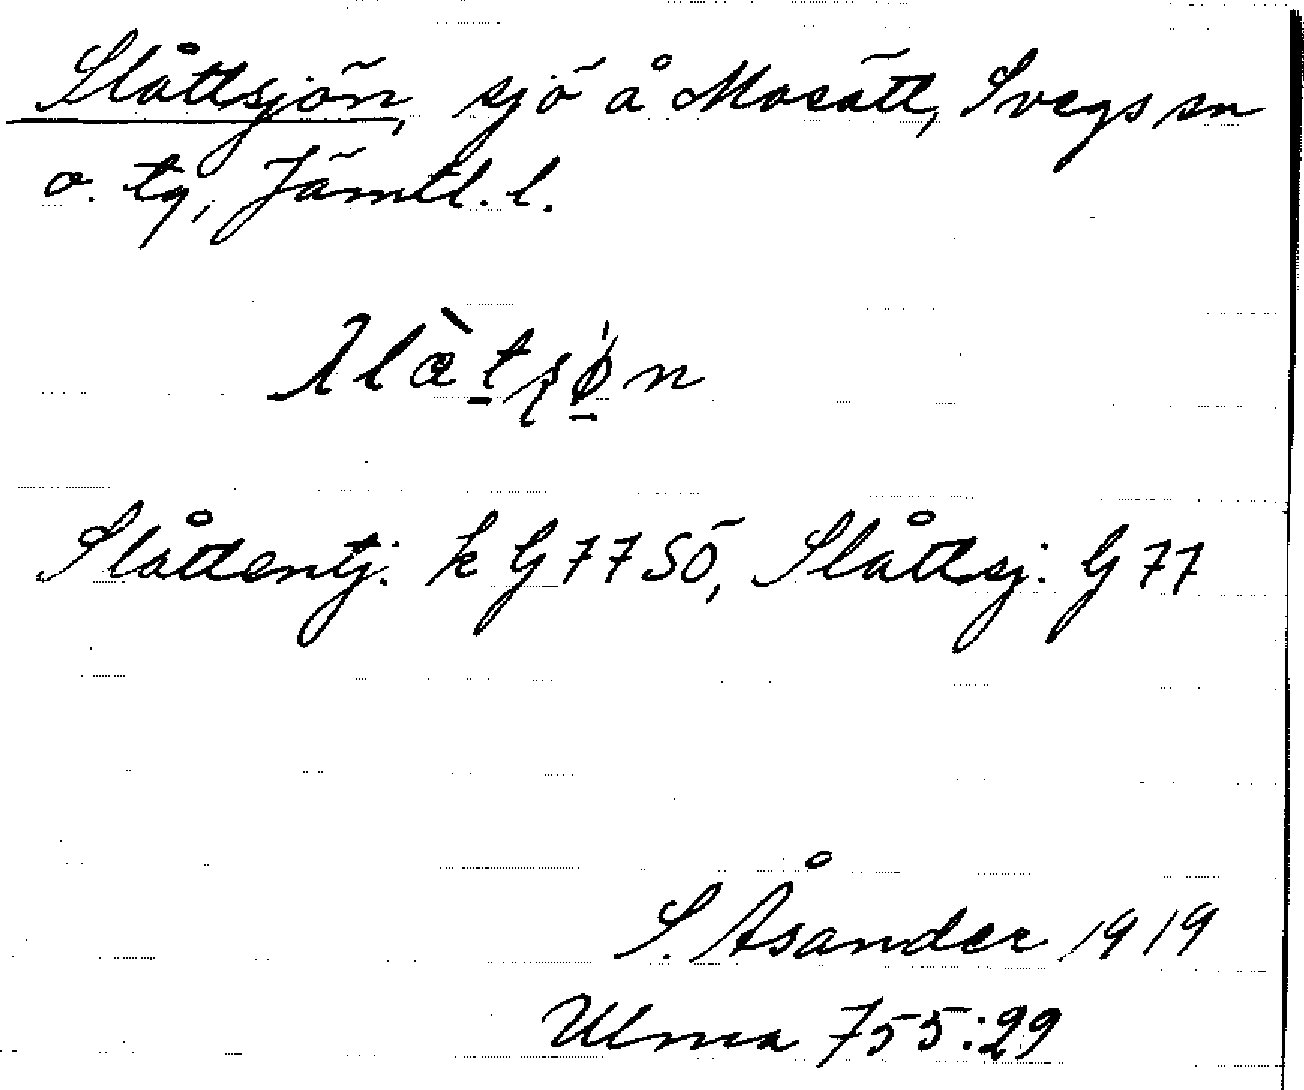 Slåttsjön, sjö å Mosätt, Svegs sn
o. tg, Jämtl. l.
Slåttentj: k G 77 SÖ, Slåttsj: G 77
S. Åsander 1919
Ulma 755:29